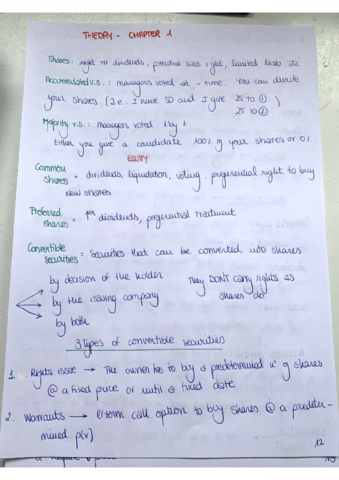 THEORY - CHAPTER 1
Shares: right to dividends, potential sub. right, limited liab. etc
Accumulated v.s.: managers voted at - time. You can divide
your shares (I.e.: I have 50 and I give 25 to ①)
25 to ②
Majority v.s.: managers voted 1 by 1
Either you give a candidate 100% of your shares or 0%
EQUITY
Common shares = dividends, liquidation, voting, preferential right to buy
new shares
Preferred shares = 1st dividends, preferential treatment
Convertible securities = Securities that can be converted into shares
by decision of the holder
They DON'T carry rights as
shares do!
by the issuing company
by both
3 types of convertible securities
1. Rights issue → The owner has to buy a predetermined nº of shares
@ a fixed price or until a fixed date
2. Warrants → l/term call option to buy shares @ a predeter-
mined p(x)
1/2